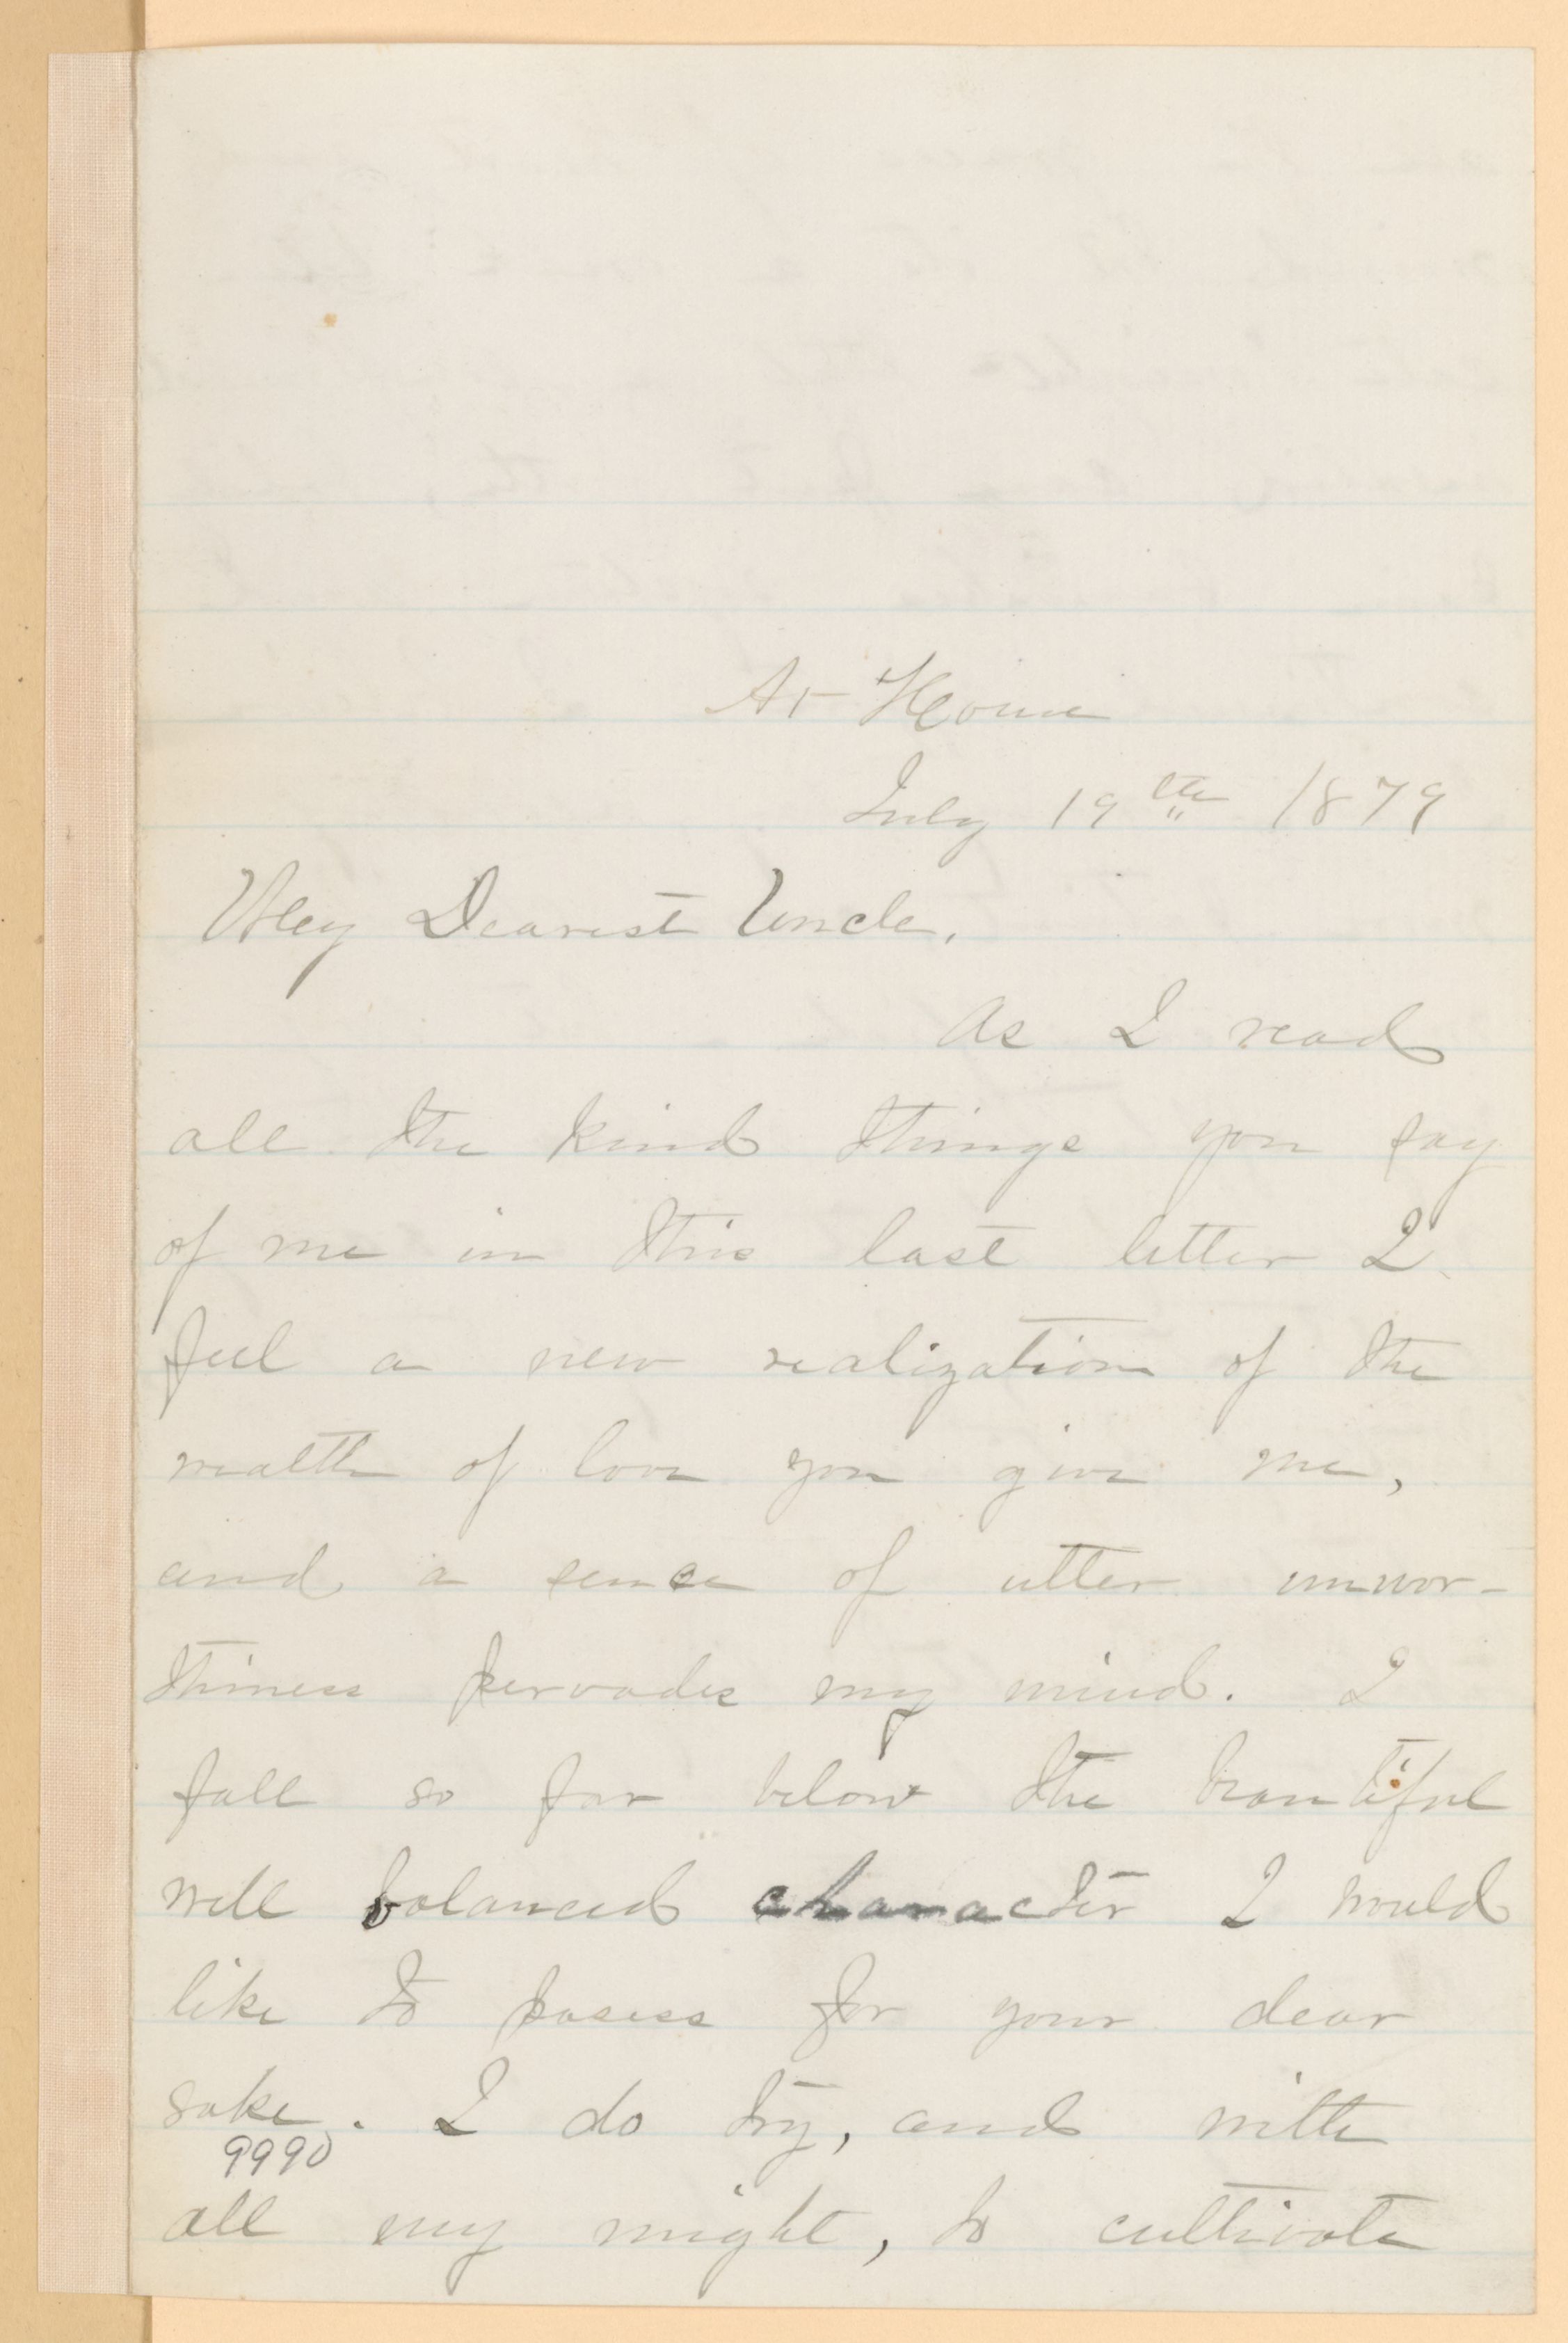 At Home
July 19th 1879
My Dearest Uncle,
As I read
all the kind things you say
of me in this last letter I
feel a new realization of the
wealth of love you give me,
and a sense of utter unwor-
thiness pervades my mind. I
fall so far below the beautiful
well balanced character I would
like to posess for your dear
sake. I do try, and with
9990
all my might, to cultivate